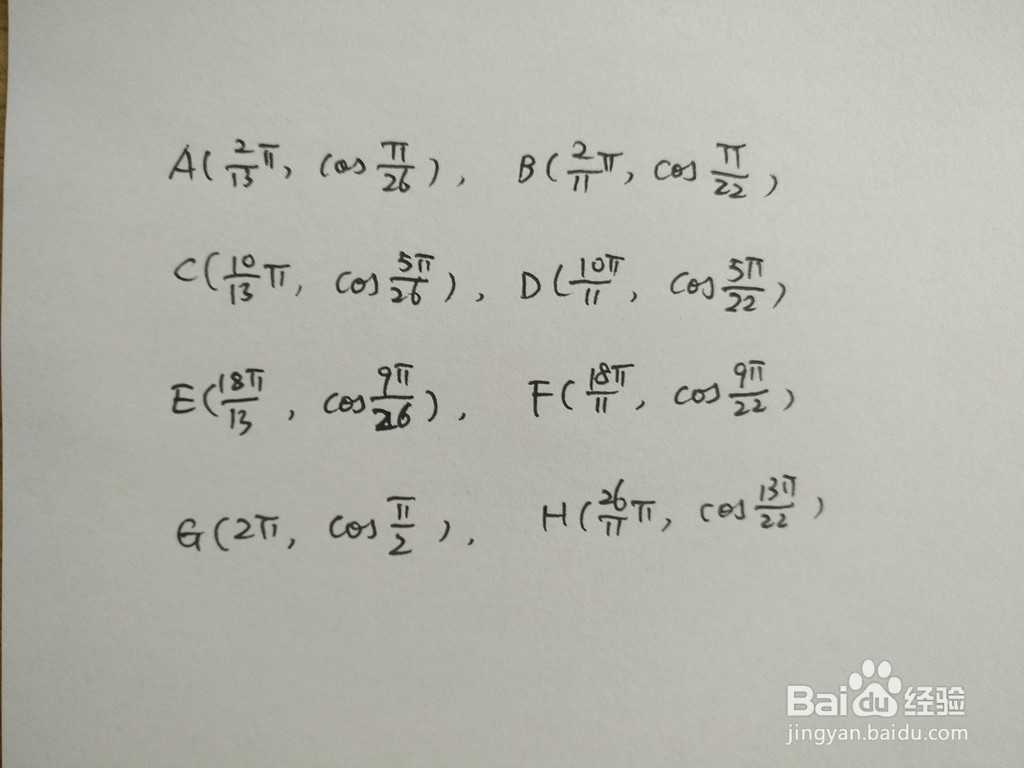 A(2/13 π, cos π/26), B(2/11 π, cos π/22)
C(10/13 π, cos 5π/26), D(10π/11, cos 5π/22)
E(18π/13, cos 9π/26), F(18π/11, cos 9π/22)
G(2π, cos π/2), H(26/11 π, cos 13π/22)
Bai 经验
jingyan.baidu.com